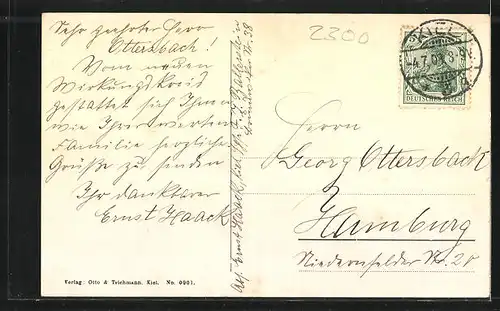 Sehr geehrter Herr
Ottersbach!
Vom neuen
Wirkungskreis
gestattet sich Ihnen
wie Ihrer werten
Familie herzliche
Grüße zu senden
Ihr dankbarer
Ernst Haack
Abs. Ernst Haack, Kiel
Nr. 38
2300
KIEL
4.7.0
8-9
DEUTSCHES REICH
Herrn
Georg Ottersbach
Hamburg
Niedernfelder Str. 20
Verlag: Otto & Teichmann, Kiel. No. 0901.